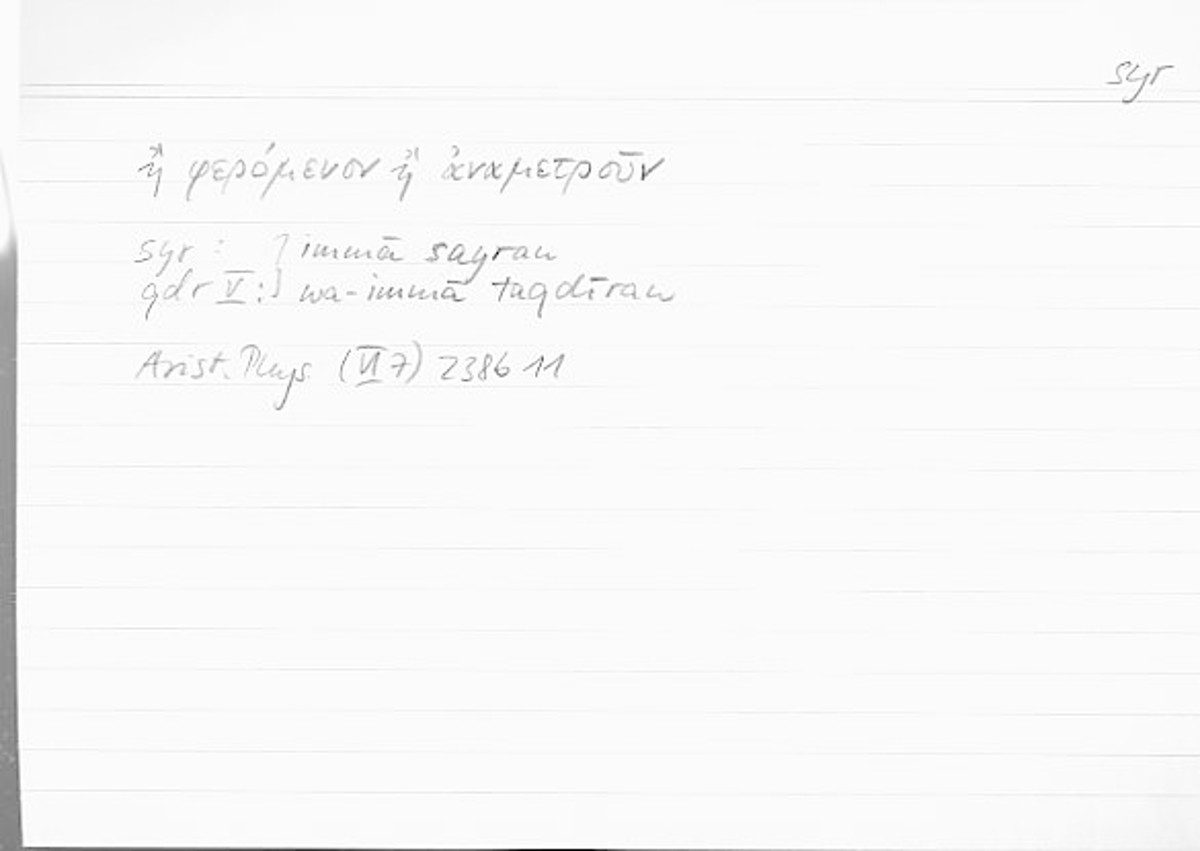 syr
ἢ φερόμενον ἢ ἀναμετροῦν
syr : } immā sayran
qdr V : } wa-immā taqdīran
Arist. Phys. (VI 7) 238b 11